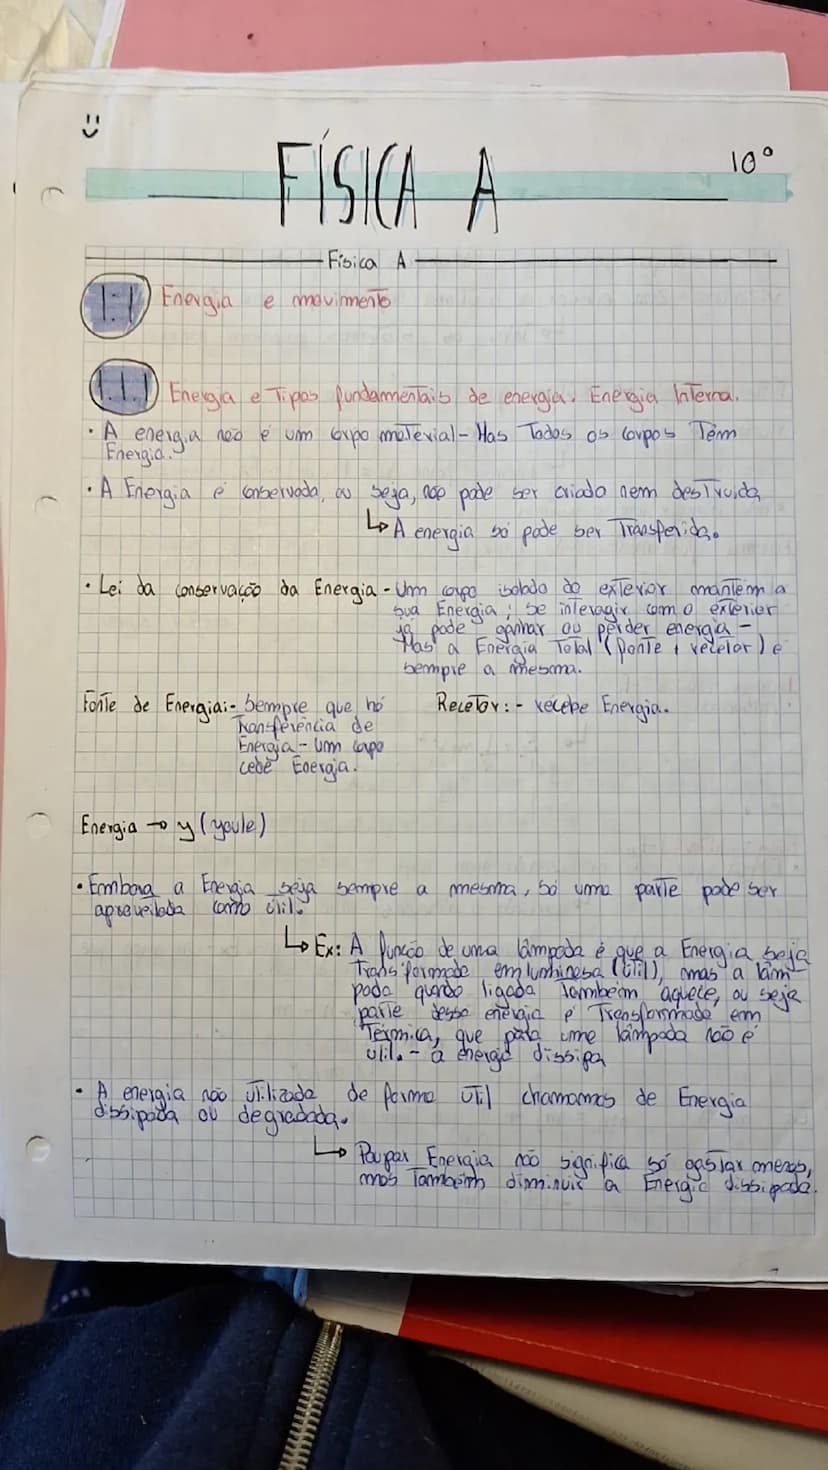 FÍSICA A
10º
Física A
1.1 Energia e movimento
1.1.1 Energia e Tipos fundamentais de energia. Energia Interna.
• A energia não é um corpo material - Mas Todos os corpos Têm
Energia.
• A Energia é conservada, ou seja, não pode ser criado nem destruida
↳ A energia só pode ser Transferida.
• Lei da conservação da Energia - Um corpo isolado do exterior mantém a
sua Energia; se interagir com o exterior
já pode ganhar ou perder energia -
Mas a Energia Total (fonte + recetor) é
sempre a mesma.
Fonte de Energia:- Sempre que há
Transferência de
Energia - um corpo
cede Energia.
Recetor: - recebe Energia.
Energia → y (youle)
• Embora a Energia seja sempre a mesma, só uma parte pode ser
aproveitada como útil.
↳ Ex: A função de uma lâmpada é que a Energia seja
Transformada em luminosa (útil), mas a lâm
pada quando ligada também aquece, ou seja
parte dessa energia é Transformada em
Térmica, que para uma lâmpada não é
útil. - a energia dissipa
• A energia não utilizada de forma útil chamamos de Energia
dissipada ou degradada.
↳ Poupar Energia não significa só gastar menos,
mas Também diminuir a Energia dissipada.